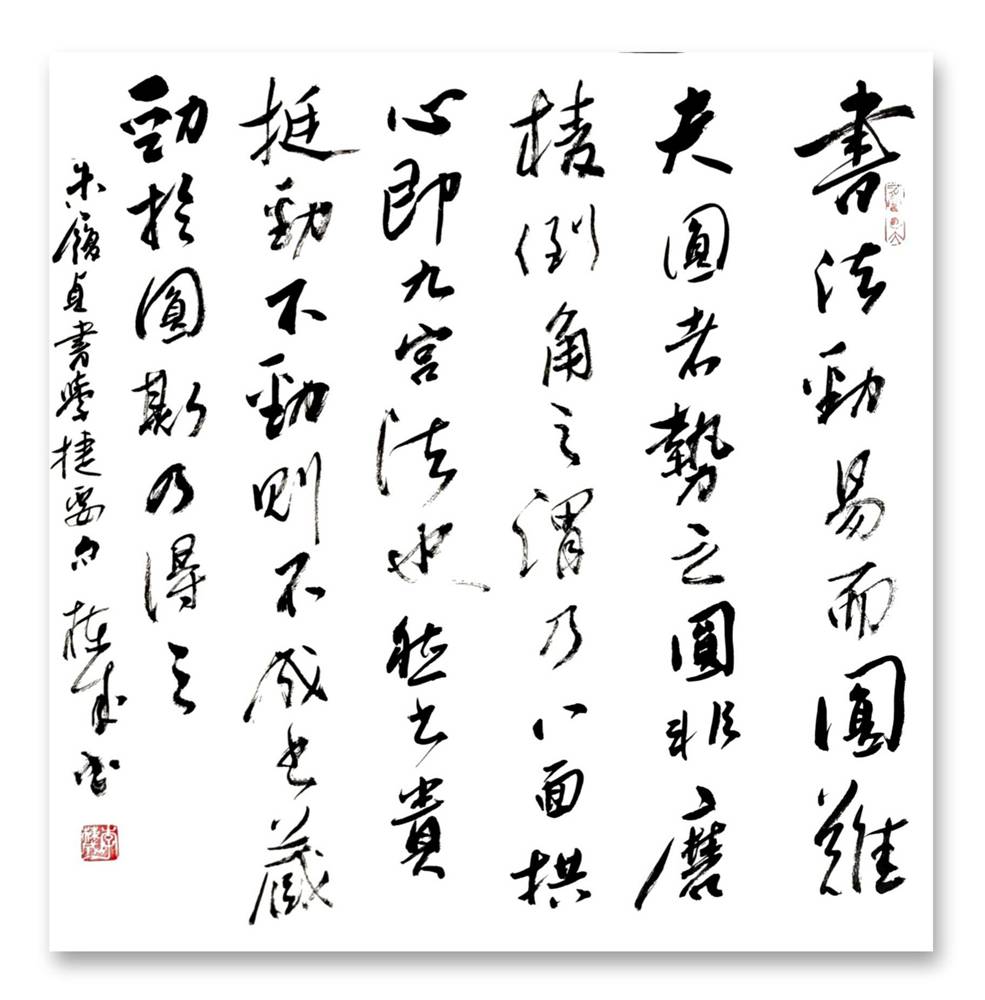 書法勁易而圓難
夫圓者勢之圓非磨
棱倒角之謂乃八面拱
心即九宮法也然書貴
挺勁不勁則不成書藏
勁於圓斯乃得之
朱履貞書學捷要句 棟成書